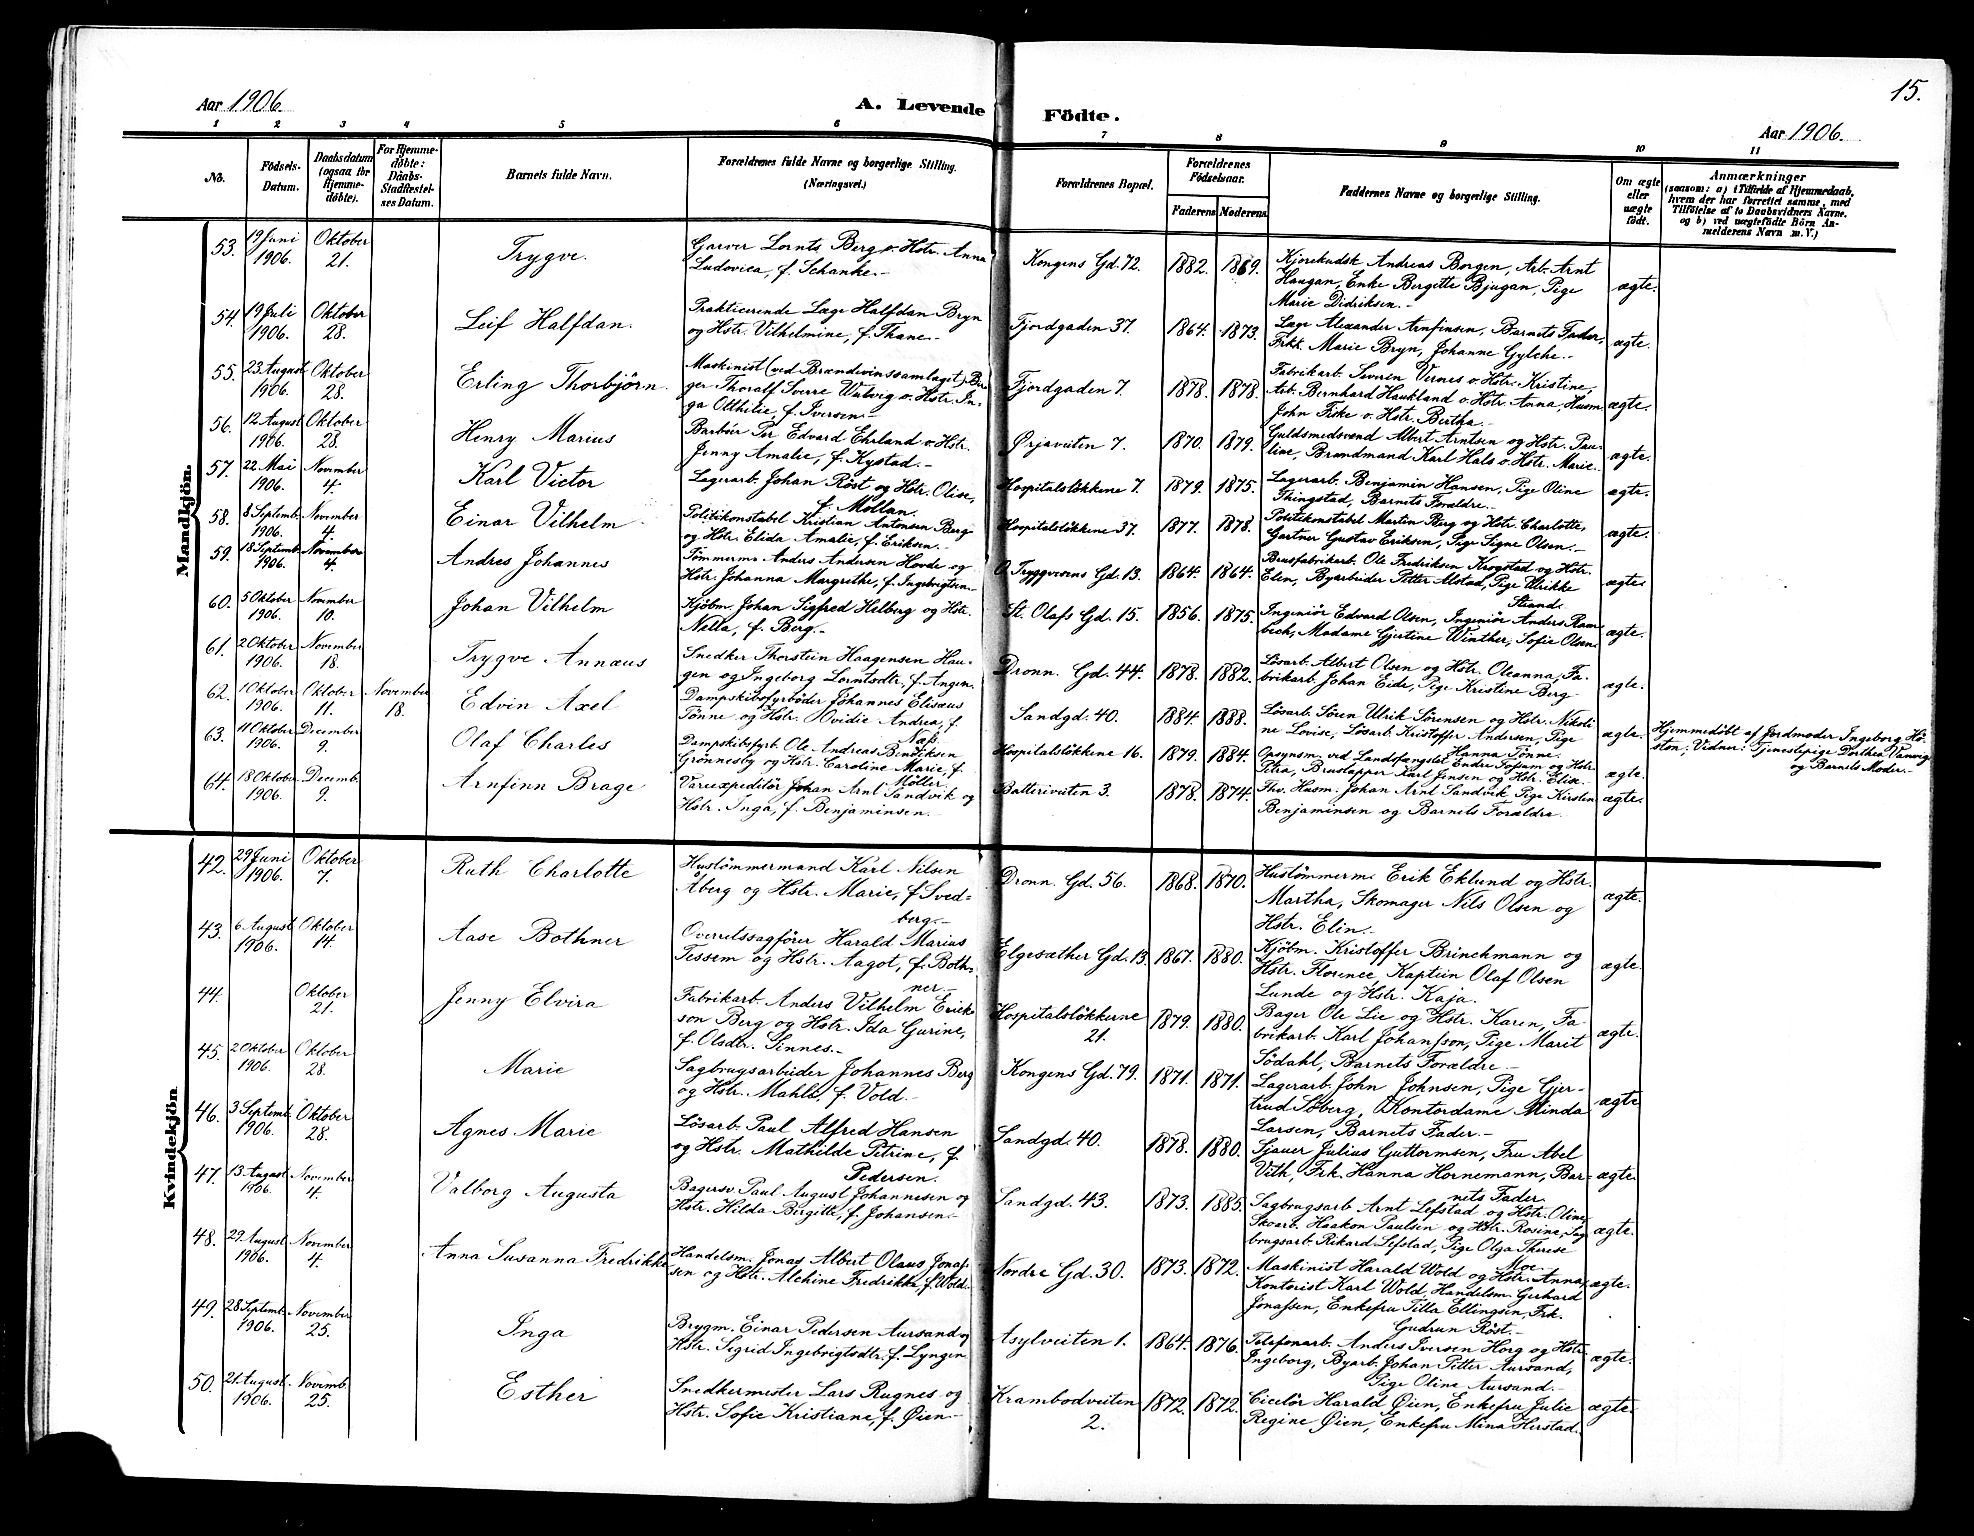 15.
Aar 1906.
A. Levende Födte.
Aar 1906.
1 2 3 4 5 6 7 8 9 10 11
No.
Födsels-
Datum.
Daabsdatum
(ogsaa for
Hjemme-
döbte).
For Hjemme-
döbte:
Daabs-
Stadfæstel-
ses Datum.
Barnets fulde Navn.
Forældrenes fulde Navne og borgerlige Stilling.
(Næringsvei.)
Forældrenes Bopæl.
Forældrenes
Födselsaar.
Faderens Moderens
Faddernes Navne og borgerlige Stilling.
Om ægte
eller
uægte
födt.
Anmærkninger
(saasom: a) i Tilfælde af Hjemmedaab,
hvem der har forrettet samme, med
Tilföielse af to Daabsvidners Navne.
og b) ved uægtefödte Börn An-
melderens Navn m. V.)
Mandkjön.
53. 19 Juni 1906. Oktober 21. Trygve.
Garver Lornts Berg o. Hstr. Anna
Ludovica, f. Schanke.-
Kongens Gd. 72. 1882. 1869.
Kjörekudsk Andreas Borgen, Arb. Arnt
Haugan, Enke Bergitte Bjugan, Pige
Marie Didriksen.-
ægte.
54. 19 Juli 1906. Oktober 28. Leif Halfdan.
Praktiserende Læge Halfdan Bryn
og Hstr. Vilhelmine, f. Thane.-
Fjordgaden 37. 1864. 1873.
Læge Alexander Arnfinsen, Barnets Fader,
Frkk. Marie Bryn, Johanne Gylche.-
ægte.
55. 23 August 1906. Oktober 28. Erling Thorbjörn.
Maskinist (ved Brændevinssamlaget) Bir-
ger Thoralf Sverre Wulvig o. Hstr. In-
ga Otthilie, f. Iversen.-
Fjordgaden 7. 1878. 1878.
Fabrikarb. Severin Vernes o. Hstr. Kristine,
Arb. Bernhard Haukland o. Hstr. Anna, Husm.
John Fiske o. Hstr. Bertha.-
ægte.
56. 12 August 1906. Oktober 28. Henry Marius
Barbér Per Edvard Ehrland o. Hstr.
Jenny Amalie, f. Kystad.-
Ørjaveiten 7. 1870. 1879.
Guldsmedsvend Albert Arntsen og Hstr. Pau-
line, Brandmand Karl Hals o. Hstr. Marie.
ægte.
57. 22 Mai 1906. November 4. Karl Victor
Lagerarb. Johan Röst og Hstr. Olise,
f. Mollan.
Hospitalslökkene 7. 1879. 1875.
Lagerarb. Benjamin Hansen, Pige Oline
Thingstad, Barnets Forældre.-
ægte.
58. 8 Septemb. 1906. November 4. Einar Vilhelm.
Politikonstabel Kristian Antonsen Berg
og Hstr. Elida Amalie, f. Eriksen.-
Hospitalslökkene 37. 1877. 1878.
Politikonstabel Martin Berg og Hstr. Charlotte,
Gartner Gustav Eriksen, Pige Signe Olsen.-
ægte.
59. 18 Septemb. 1906. November 4. Andres Johannes
Tömmerm. Anders Andersen Hovde og
Hstr. Johanna Margrethe, f. Ingebrigtsen.
O. Tryggvesens Gd. 13. 1864. 1864.
Brusfabrikarb. Ole Fredriksen Krogstad og Hstr.
Elen, Byarbeider Petter Alstad, Pige Ulrikke
Strand.
ægte
60. 5 Oktober 1906. November 10. Johan Vilhelm
Kjöbm. Johan Sigfred Helberg og Hstr.
Nella, f. Berg.-
St. Olafs Gd. 15. 1856. 1875.
Ingeniör Edvard Olsen, Ingeniör Anders Ram-
bech, Madame Gjertine Winther, Sofie Olsen.
ægte.
61. 2 Oktober 1906. November 18. Trygve Annæus
Snedker Thorstein Haagensen Hau-
gen og Ingeborg Lorntsdtr. f. Angen.
Dronn. Gd. 44. 1878. 1882.
Lösarb. Albert Olsen og Hstr. Oleanna, Fa-
brikarb. Johan Eide, Pige Kristine Berg
ægte.
62. 1 Oktober 1906. Oktober 11. November 18. Edvin Axel
Dampskibsfyrböder Johannes Elisæus
Tönne og Hstr. Ovidie Andrea, f.
Næss.
Sandgd. 40. 1884. 1888.
Lösarb. Sören Ulrik Sörensen og Hstr. Nikoli-
ne Lovise, Lösarb. Kristoffer Andersen, Pige
Hanna Tönne.
ægte.
Hjemmedöbt af Jordmoder Ingeborg Hö-
ston; Vidner: Tjenestepige Dorthea Vanvig
og Barnets Moder.-
63. 11 Oktober 1906. December 9. Olaf Charles
Dampskibsfyrb. Ole Andreas Bendiksen
Grönnesby og Hstr. Caroline Marie, f.
Möller.
Hospitalslökkene 16. 1879. 1884.
Opsynsm. ved Landsfængslet Endre Fossam og Hstr.
Petra, Brustapper Karl Jensen og Hstr. Elise.
ægte
64. 18 Oktober 1906. Decemb. 9. Arnfinn Brage
Vareexpeditör Johan Arnt Sandvik og
Hstr. Inga, f. Benjaminsen.-
Batteriveiten 3. 1878. 1874.
Thv. Husm. Johan Arnt Sandvik Pige Kirsten
Benjaminsen og Barnets Forældre.
ægte.
Kvindekjön
42. 29 Juni 1906. Oktober 7. Ruth Charlotte
Hustömmermand Karl Nilsen
Åberg og Hstr. Marie, f. Sved-
berg.-
Dronn. Gd. 56. 1868. 1870.
Hustömmerm. Erik Eklund og Hstr.
Martha, Skomager Nils Olsen og
Hstr. Elin.-
ægte.
43. 6 August 1906. Oktober 14. Aase Bothner
Overretssagförer Harald Marius
Tessem og Hstr. Aagot, f. Both-
ner.-
Elgesæther Gd. 13. 1867. 1880.
Kjöbm. Kristoffer Brinchmann og
Hstr. Florence, Kaptein Olaf Olsen
Lunde og Hstr. Kaja.
ægte.
44. Oktober 21. Jenny Elvira
Fabrikarb. Anders Vilhelm Erik-
son Berg og Hstr. Ida Gurine,
f. Olsdtr. Sinnes.-
Hospitalslökkerne
21.
1879. 1880.
Bager Ole Lie og Hstr. Karen, Fa-
brikarb. Karl Johansson, Pige Marit
Södahl, Barnets Forældre.-
ægte.
45. 2 Oktober 1906. Oktober 28. Marie
Sagbrugsarbeider Johannes Berg
og Hstr. Mahle, f. Vold.-
Kongens Gd. 79. 1871. 1871.
Lagerarb. John Johnsen, Pige Gjer-
trud Söberg, Kontordame Minda
Larsen, Barnets Fader.-
ægte
46. 3 Septemb. 1906. Oktober 28. Agnes Marie
Lösarb. Paul Alfred Hansen
og Hstr. Mathilde Petrine, f.
Pedersen.
Sandgd. 40. 1878. 1880.
Sjauer Julius Guttormsen, Fru Abel
Vith, Frk. Hanna Hornemann, Bar-
nets Fader.
ægte.
47. 13 August 1906. November 4. Valborg Augusta
Bagersv. Paul August Johannesen og
Hstr. Hilda Birgitte, f. Johansen.-
Sandgd. 43. 1873. 1885.
Sagbrugsarb Arnt Lefstad og Hstr. Oline,
Skoarb. Haakon Paulsen og Hstr. Rosine, Sag-
brugsarb. Rikard Lefstad, Pige Olga Therese
Moe.
ægte.
48. 29 August 1906. November 4. Anna Susanna Fredrikke
Handelsm. Jonas Albert Olaus Jonas-
sen og Hstr. Alchine Fredrikke, f. Wold.
Nordre Gd. 30. 1873. 1872.
Maskinist Harald Wold og Hstr. Anna,
Kontorist Karl Wold, Handelsm. Gerhard
Jonassen, Enkefru Tilla Ellingsen, Frk.
Gudrun Röst.-
ægte.
49. 28 Septemb. 1906. November 25. Inga
Brygm. Einar Pedersen Aursand og
Hstr. Sigrid Ingebrigtsdtr. f. Lyngen
Asylveiten 1. 1864. 1876.
Telefonarb. Anders Iversen Horg og Hstr.
Ingeborg, Byarb. Johan Petter Aursand,
Pige Oline Aursand.-
ægte.
50. 21 August. 1906. Novemb. 25. Esther
Snedkermester Lars Rugnes og
Hstr. Sofie Kristiane, f. Øien.-
Krambodveiten
2.
1872. 1872.
Ciselör Harald Øien, Enkefru Julie
Regine Øien, Enkefru Mina Hirstad.
ægte.